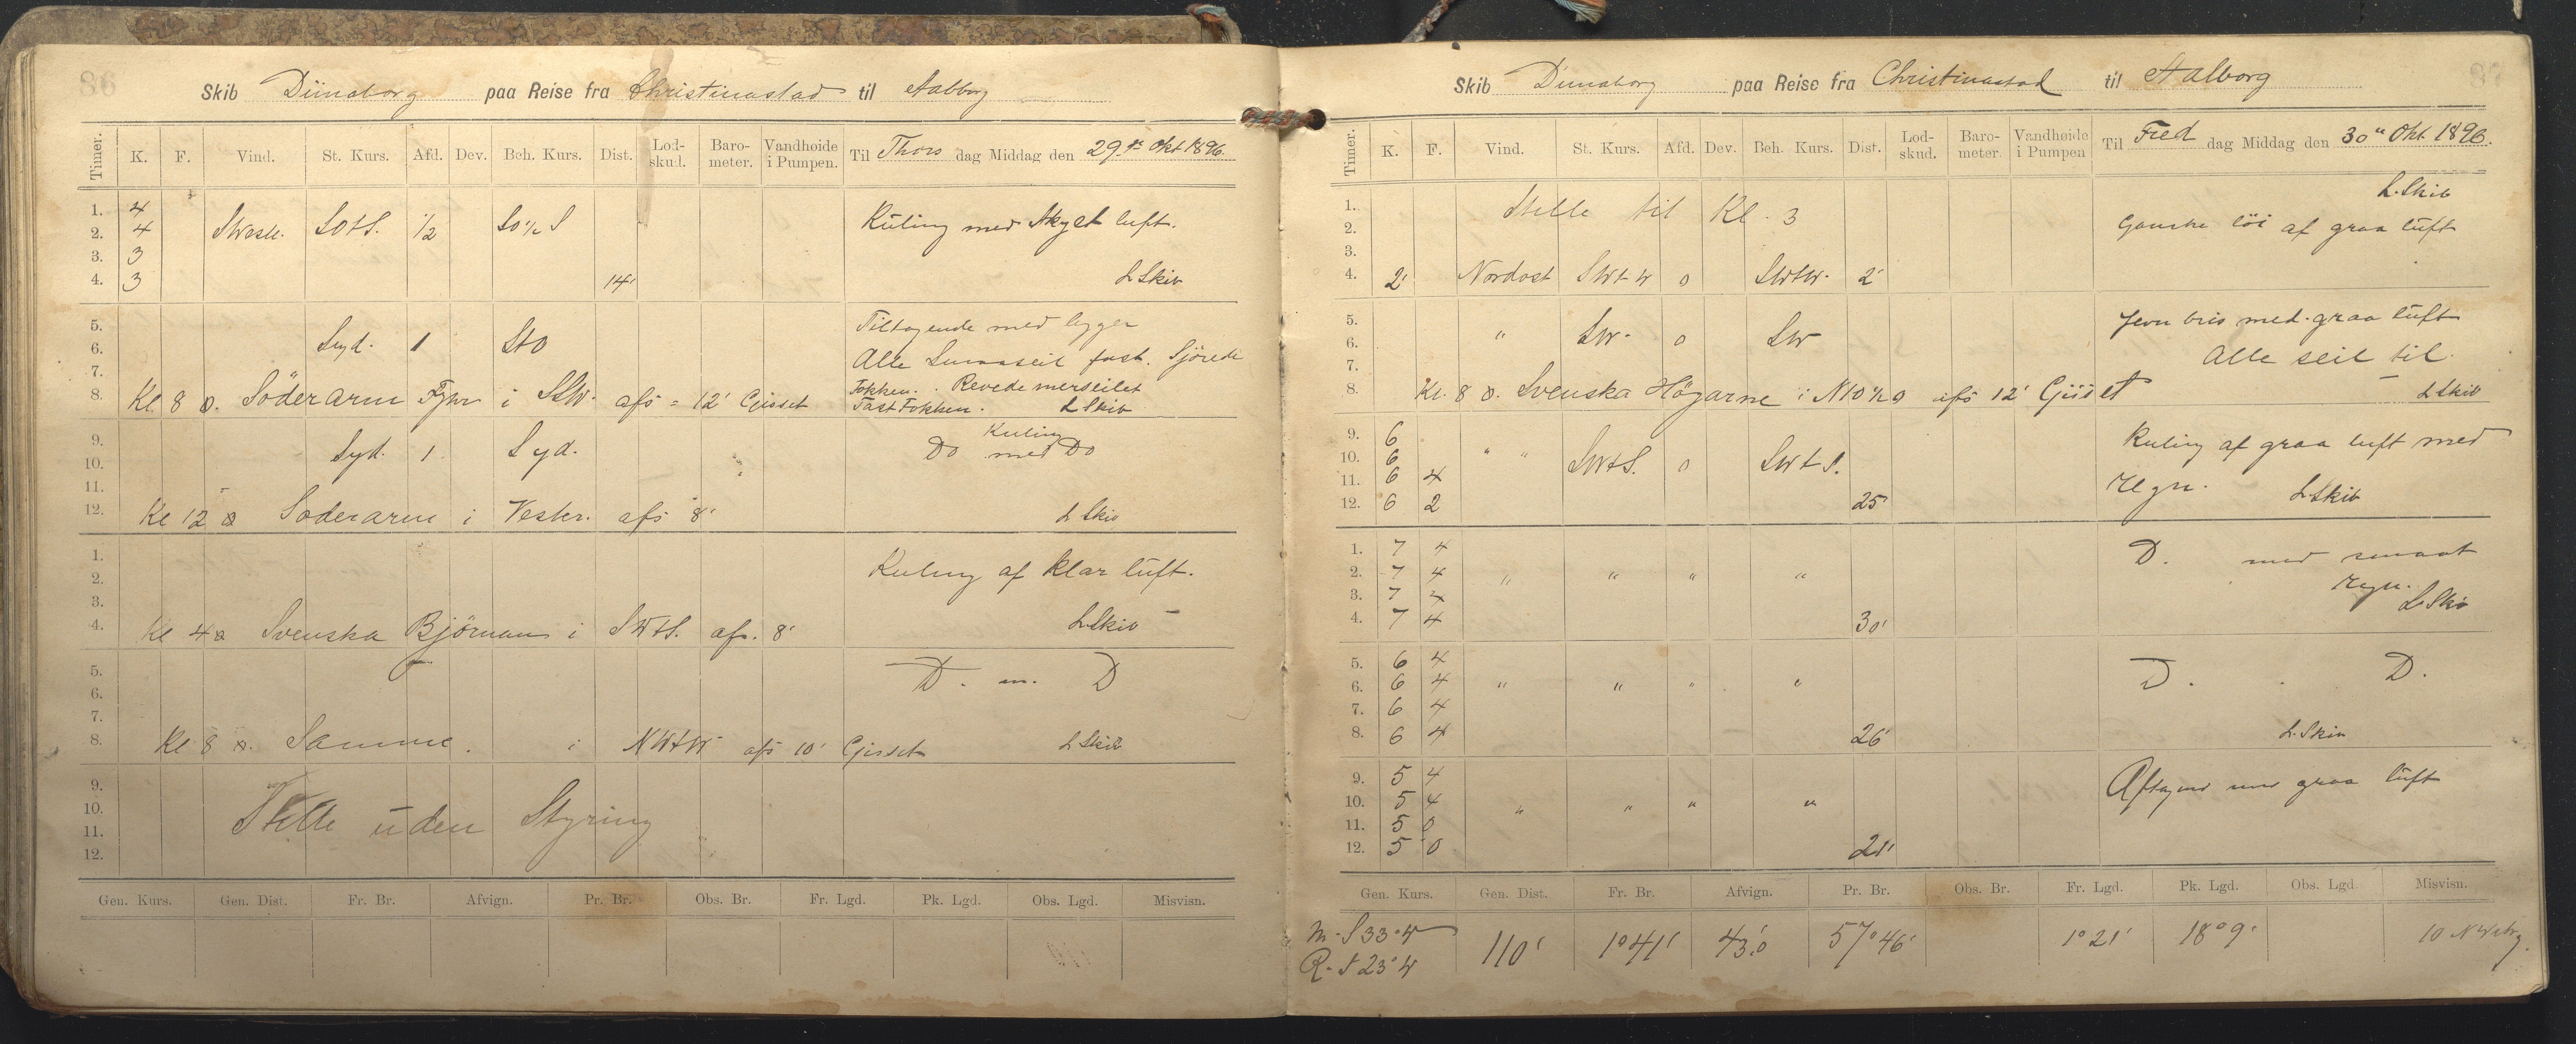 86
Skib Dünaborg paa Reise fra Christinastad til Aalborg
Timer. K. F. Vind. St. Kurs. Afd. Dev. Beh. Kurs. Dist. Lod-skud. Baro-meter. Vandhøide i Pumpen. Til Thors dag Middag den 29de Okt 1896.
1. 4
2. 4 SWestl. SOtS. 1/2 SO1/2S Kuling med Skyet luft.
3. 3
4. 3 14' L Skib
5. Tiltagende med bygger
6. Syd. 1 StO Alle Smaaseil fast. Sjörede
7. Fokken. Revede merseilet
8. Kl 8 o. Söderarm Fyhr i SSW. afs = 12' Gjisset Fast Fokken. L Skib
9. Syd. 1 Syd. Do Kuling med Do
10.
11.
12. Kl 12 o Soderarm i Vester. afs 8' L Skib
1. Kuling af klar luft.
2.
3.
4. Kl 4 o Svenska Björnan i SWtS. afs. 8' L Skib
5. D. m. D
6.
7.
8. Kl 8 o. Samme. i NWtW afs 10' Gjisset L Skib
9.
10. Stille uden Styring
11.
12.
Gen. Kurs. Gen. Dist. Fr. Br. Afvign. Pr. Br. Obs. Br. Fr. Lgd. Pk. Lgd. Obs. Lgd. Misvisn.
87
Skib Dünaborg paa Reise fra Christinastad til Aalborg
Timer. K. F. Vind. St. Kurs. Afd. Dev. Beh. Kurs. Dist. Lod-skud. Baro-meter. Vandhøide i Pumpen Til Fred dag Middag den 30te Okt. 1896.
1. Stille til Kl. 3 L. Skib
2. Ganske löi af graa luft
3.
4. 2' Nordost SWtW 0 SWtW. 2'
5. Jevn bris med graa luft
6. " SW. 0 SW Alle seil til.
7.
8. Kl. 8 o. Svenska Högarne i NtO1/2O afs 12' Gjiset L Skib
9. 6 Kuling af graa luft med
10. 6 " " SWtS. 0 SWtS.
11. 6 4 Regn. L Skib
12. 6 2 25
1. 7 4 D. med smaat
2. 7 4 " " " " Regn.
3. 7 4 L Skib
4. 7 4 30'
5. 6 4 D. D.
6. 6 4 " " " "
7. 6 4
8. 6 4 26' L. Skib
9. 5 4 Aftagend med graa luft
10. 5 4 " " " "
11. 5 0
12. 5 0 21'
Gen. Kurs. Gen. Dist. Fr. Br. Afvign. Pr. Br. Obs. Br. Fr. Lgd. Pk. Lgd. Obs. Lgd. Misvisn.
m. S 33° W 110' 1° 41' 43,'0 57° 46' 1° 21' 18° 9' 10
R. S 23° W